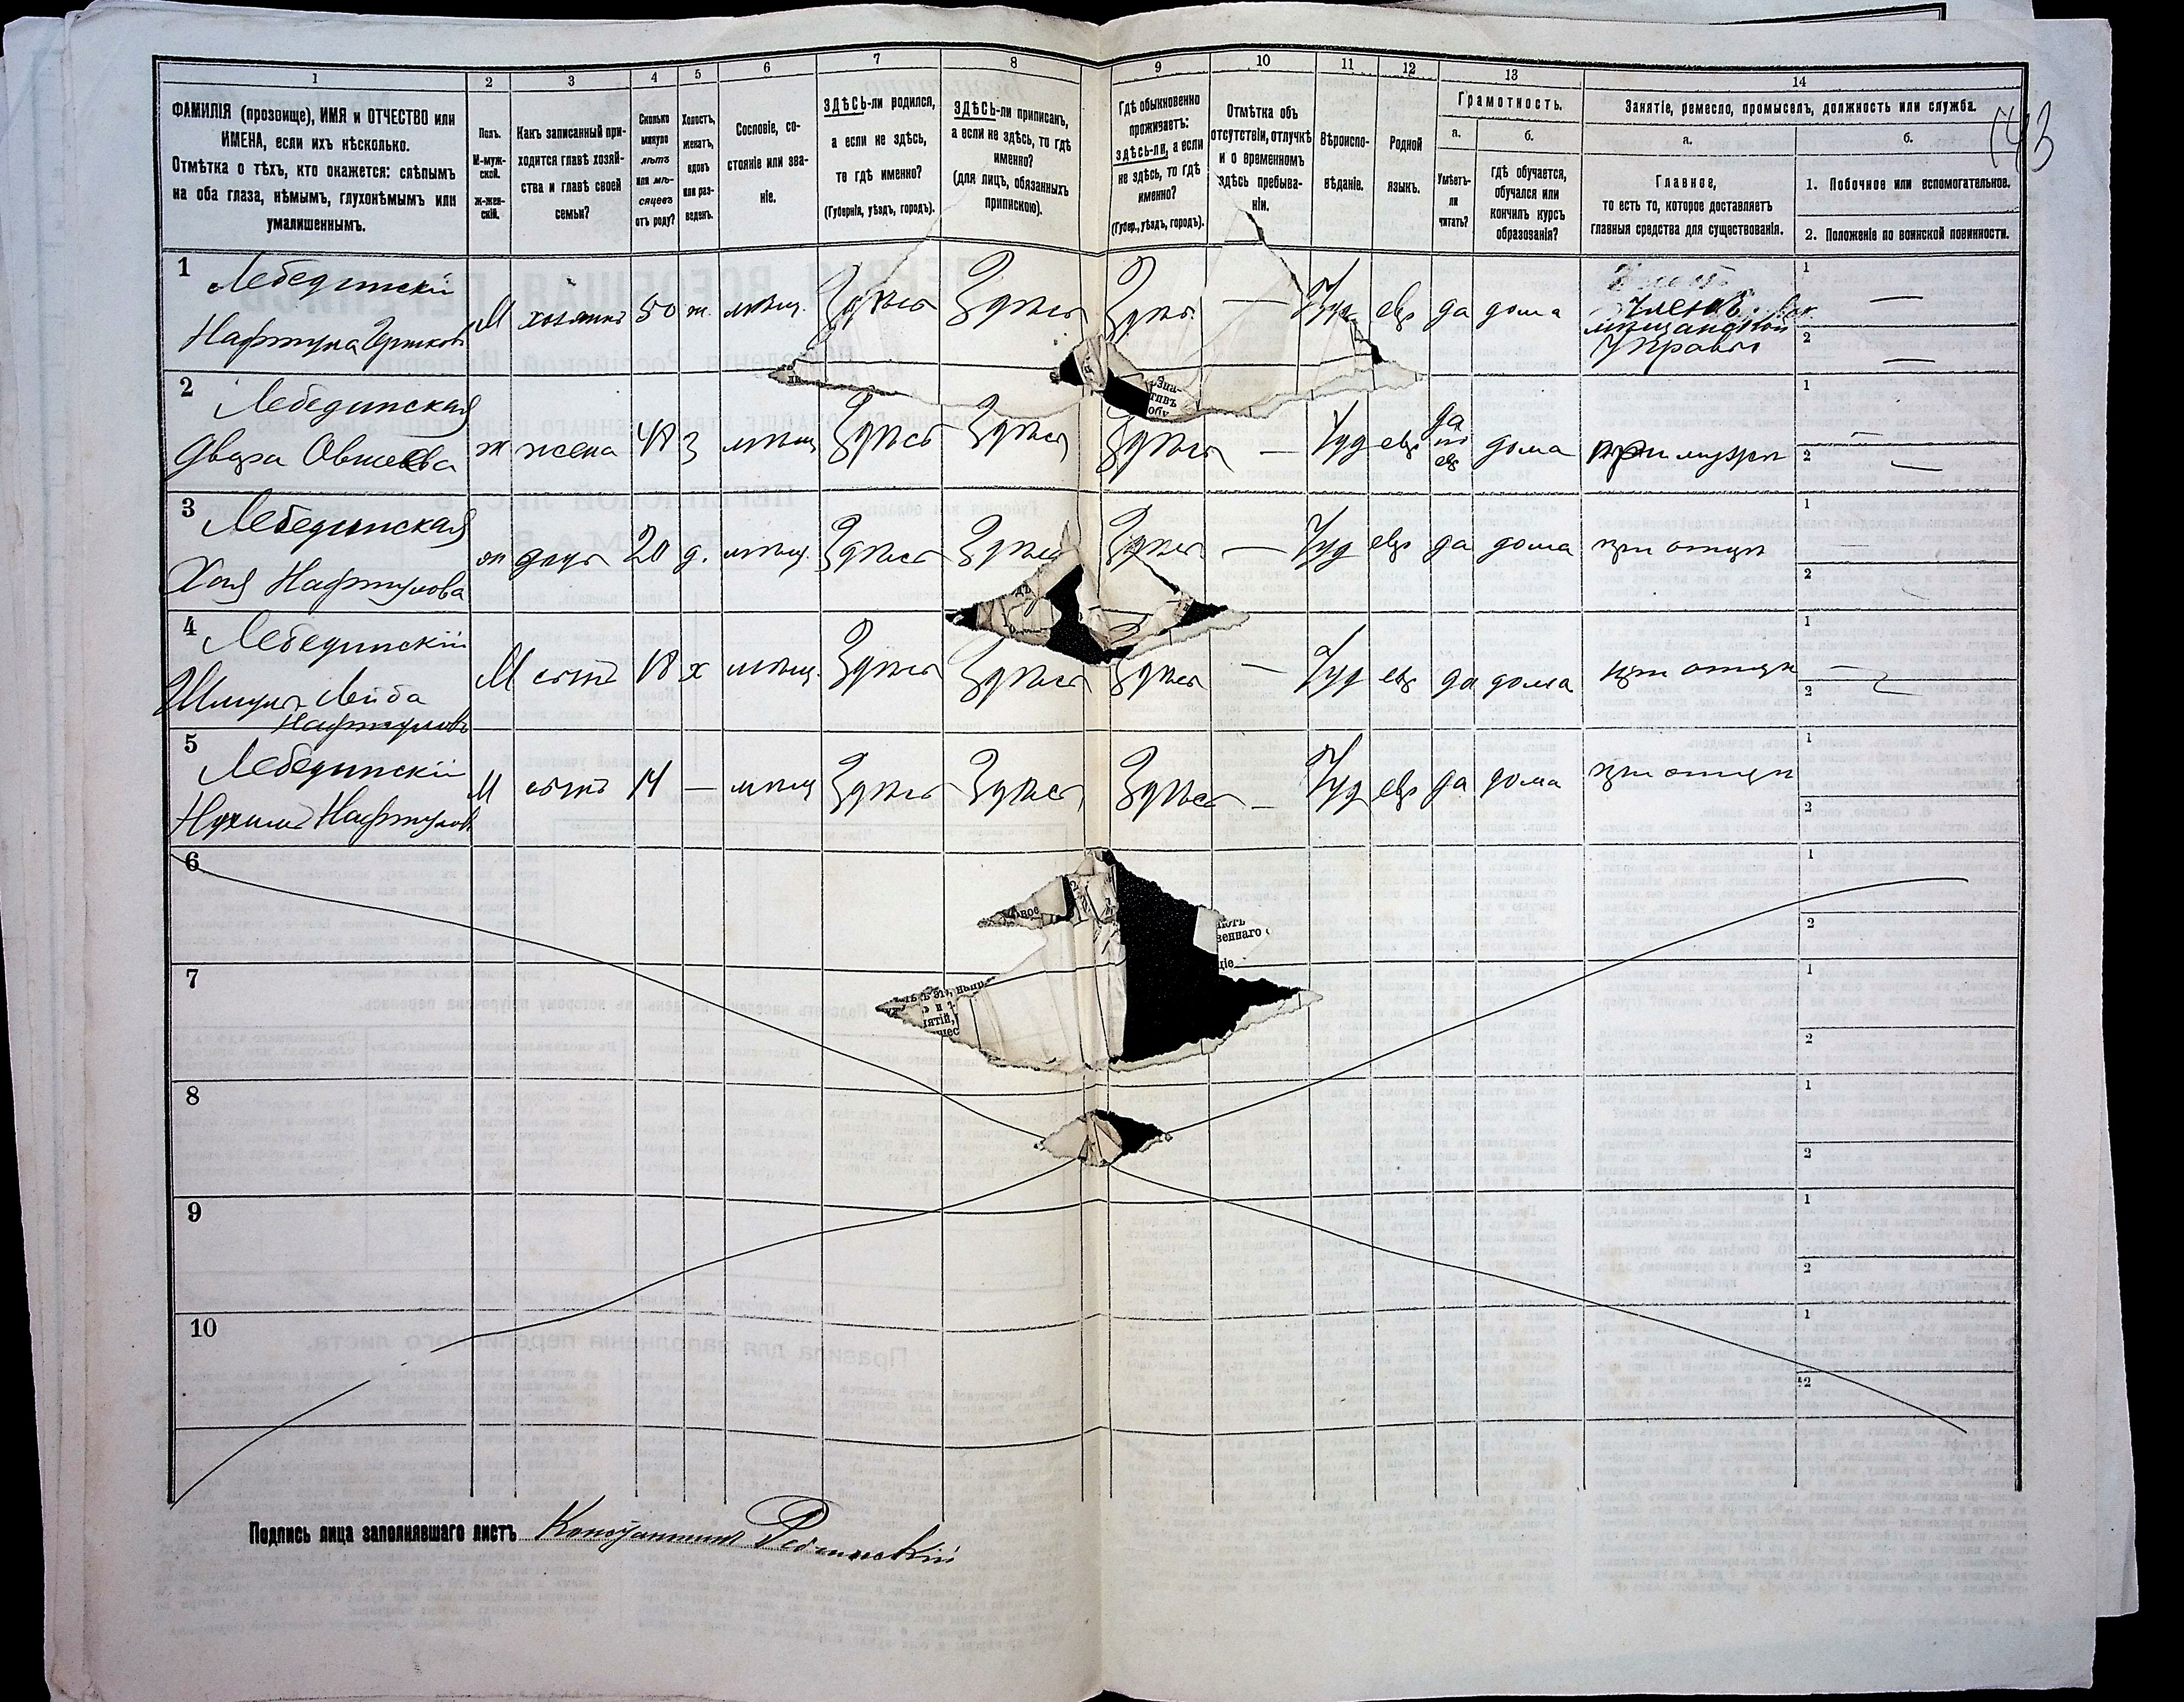 1 2 3 4 5 6 7 8 9 10 11 12 13 14
ФАМИЛІЯ (прозвище), ИМЯ и ОТЧЕСТВО или
ИМЕНА, если ихъ нѣсколько.
Отмѣтка о тѣхъ, кто окажется: слѣпымъ
на оба глаза, нѣмымъ, глухонѣмымъ или
умалишеннымъ.
Полъ.
М-муж-
ской.
ж-жен-
скій.
Какъ записанный при-
ходится главѣ хозяй-
ства и главѣ своей
семьи?
Сколько
минуло
лѣтъ
или мѣ-
сяцевъ
отъ роду?
Холостъ,
женатъ,
вдовъ
или раз-
веденъ.
Сословіе, со-
стояніе или зва-
ніе.
ЗДѢСЬ-ли родился,
а если не здѣсь,
то гдѣ именно?
(Губернія, уѣздъ, городъ).
ЗДѢСЬ-ли приписанъ,
а если не здѣсь, то гдѣ
именно?
(для лицъ, обязанныхъ
припискою).
Гдѣ обыкновенно
проживаетъ:
здѣсь-ли, а если
не здѣсь, то гдѣ
именно?
(Губер., уѣздъ, городъ).
Отмѣтка объ
отсутствіи, отлучкѣ
и о временномъ
здѣсь пребыва-
ніи.
Вѣроиспо-
вѣданіе.
Родной
языкъ.
Грамотность.
а.
Умѣетъ-
ли
читать?
б.
гдѣ обучается,
обучался или
кончилъ курсъ
образованія?
Занятіе, ремесло, промыселъ, должность или служба.
а.
Главное,
то есть то, которое доставляетъ
главныя средства для существованія.
б.
1. Побочное или вспомогательное.
2. Положеніе по воинской повинности.
143
1 Лебединскій М хозяинъ 50 ж. мѣщ. Здѣсь Здѣсь Здѣсь — Іуд евр да дома Членъ 1 —
Нафтула мѣщанской 2 —
Управы
2 Лебединская ж жена 48 З мѣщ Здѣсь Здѣсь Здѣсь — Іуд евр да по евр дома при мужѣ 1 —
Двера Овшеева 2 —
3 Лебединская ж дочь 20 д. мѣщ. Здѣсь Здѣсь Здѣсь — Іуд евр да дома при отцѣ 1
Хая Нафтулова 2
4 Лебединскій М сынъ 18 х мѣщ. Здѣсь Здѣсь Здѣсь — Іуд евр да дома при отцѣ 1 —
Шмуль Лейба 2
Нафтуловъ
5 Лебединскій М сынъ 14 — мѣщ Здѣсь Здѣсь Здѣсь — Іуд евр да дома при отцѣ 1
Нухимъ Нафтулов 2
6 1
2
7 1
2
8 1
2
9 1
2
10 1
2
Подпись лица заполнявшаго листъ Константинъ